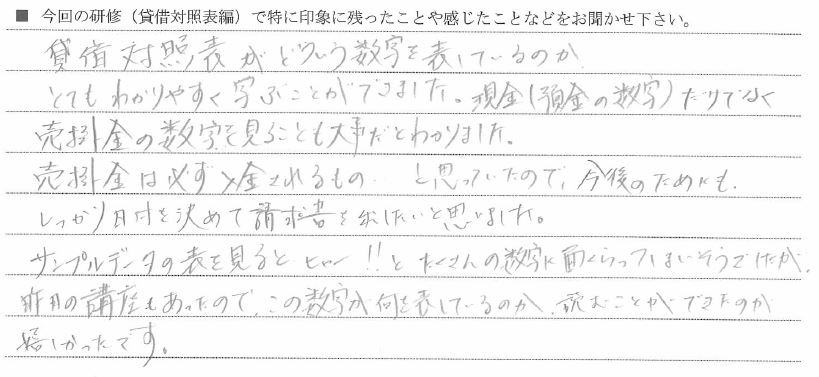 ■ 今回の研修（貸借対照表編）で特に印象に残ったことや感じたことなどをお聞かせ下さい。
貸借対照表がどういう数字を表しているのか
とてもわかりやすく学ぶことができました。現金(預金の数字)だけでなく
売掛金の数字を見ることも大事だとわかりました。
売掛金は必ず入金されるもの…と思っていたので、今後のためにも、
しっかり日付を決めて請求書を出したいと思いました。
サンプルデータの表を見るとヒャー!!とたくさんの数字に面くらってしまいそうでしたが、
昨月の講座もあったので、この数字が何を表しているのか、読むことができたのが
嬉しかったです。